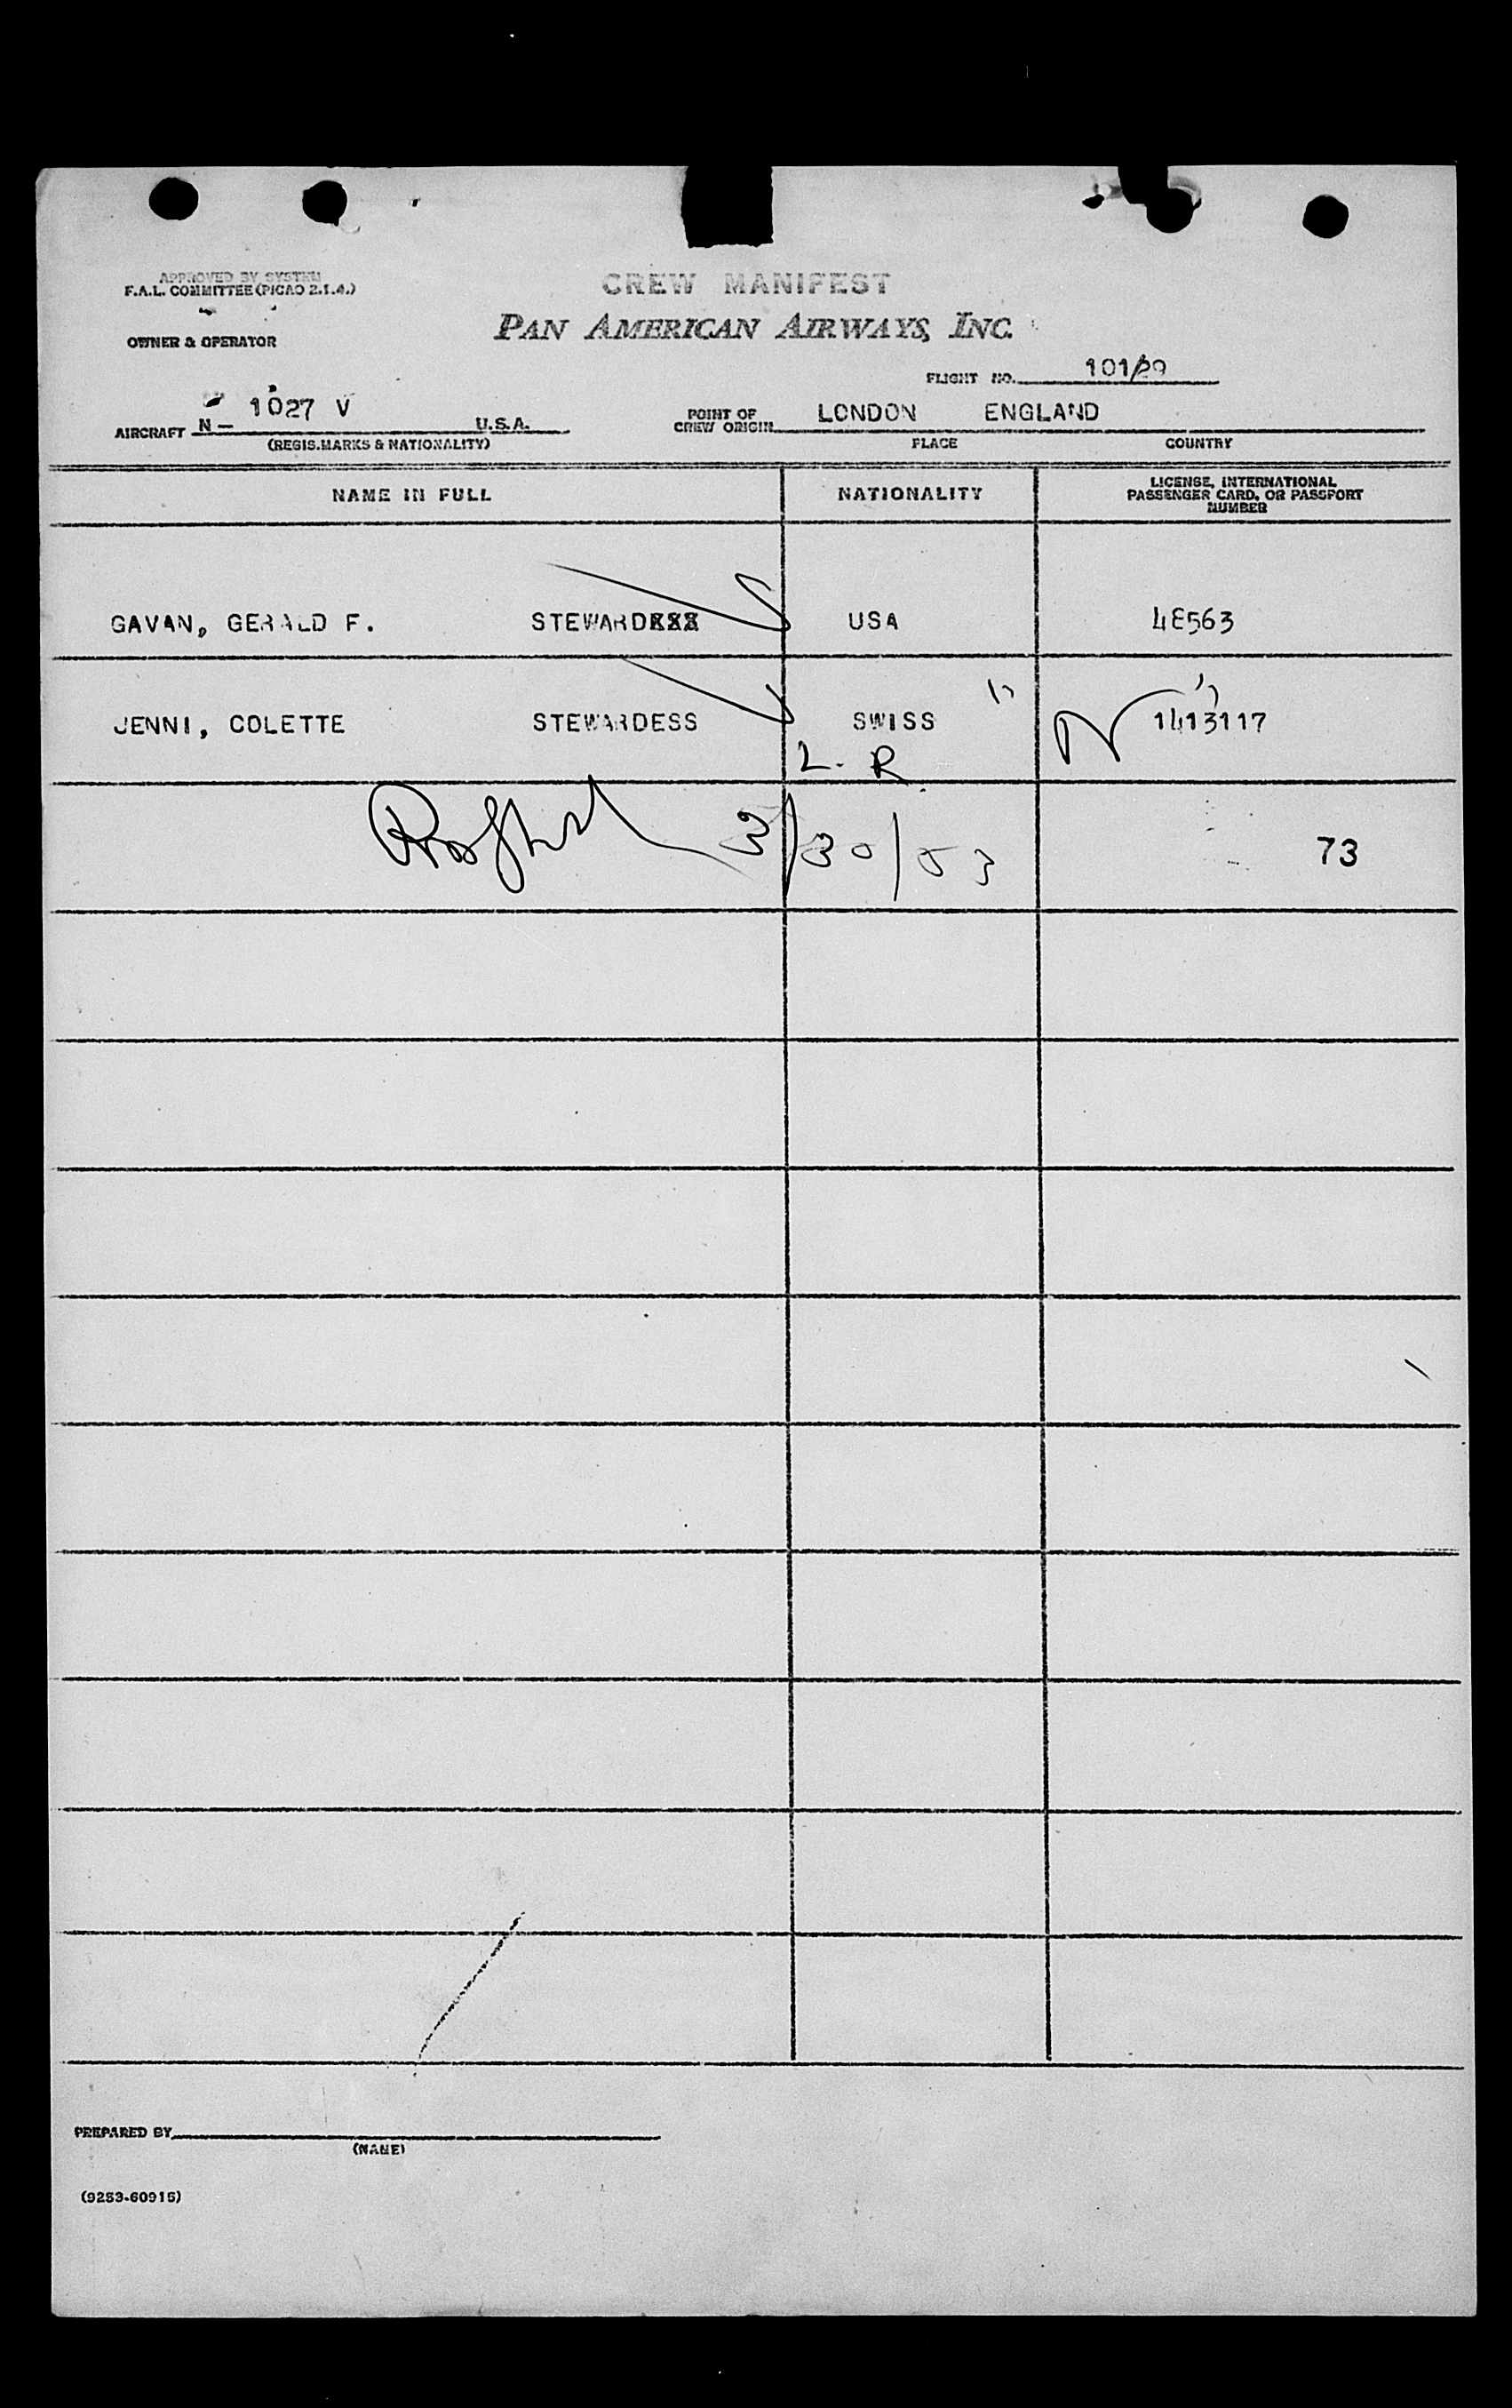 APPROVED BY SYSTEM
F.A.L. COMMITTEE (PICAO 2.1.4.)
CREW MANIFEST
OWNER & OPERATOR
PAN AMERICAN AIRWAYS, INC.
FLIGHT NO. 101/29
AIRCRAFT N- 1027 V U.S.A.
(REGIS. MARKS & NATIONALITY)
POINT OF CREW ORIGIN LONDON ENGLAND
PLACE COUNTRY
NAME IN FULL NATIONALITY LICENSE, INTERNATIONAL PASSENGER CARD, OR PASSPORT NUMBER
GAVAN, GERALD F. STEWARDXXX USA 48563
JENNI, COLETTE STEWARDESS SWISS 1413117
L. R.
3/30/53 73
PREPARED BY
(NAME)
(9253-60915)